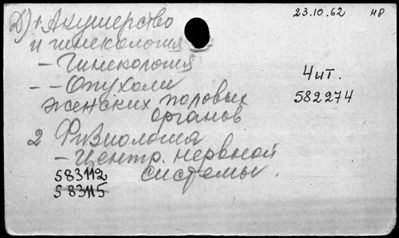 Д) 1 Акушерство
и гинекология
- Гинекология
- - Опухоли
женских половых
органов
2 Физиология
- Центр. нервной
системы.
583112
583115
23.10.62 НР
4 шт.
582274